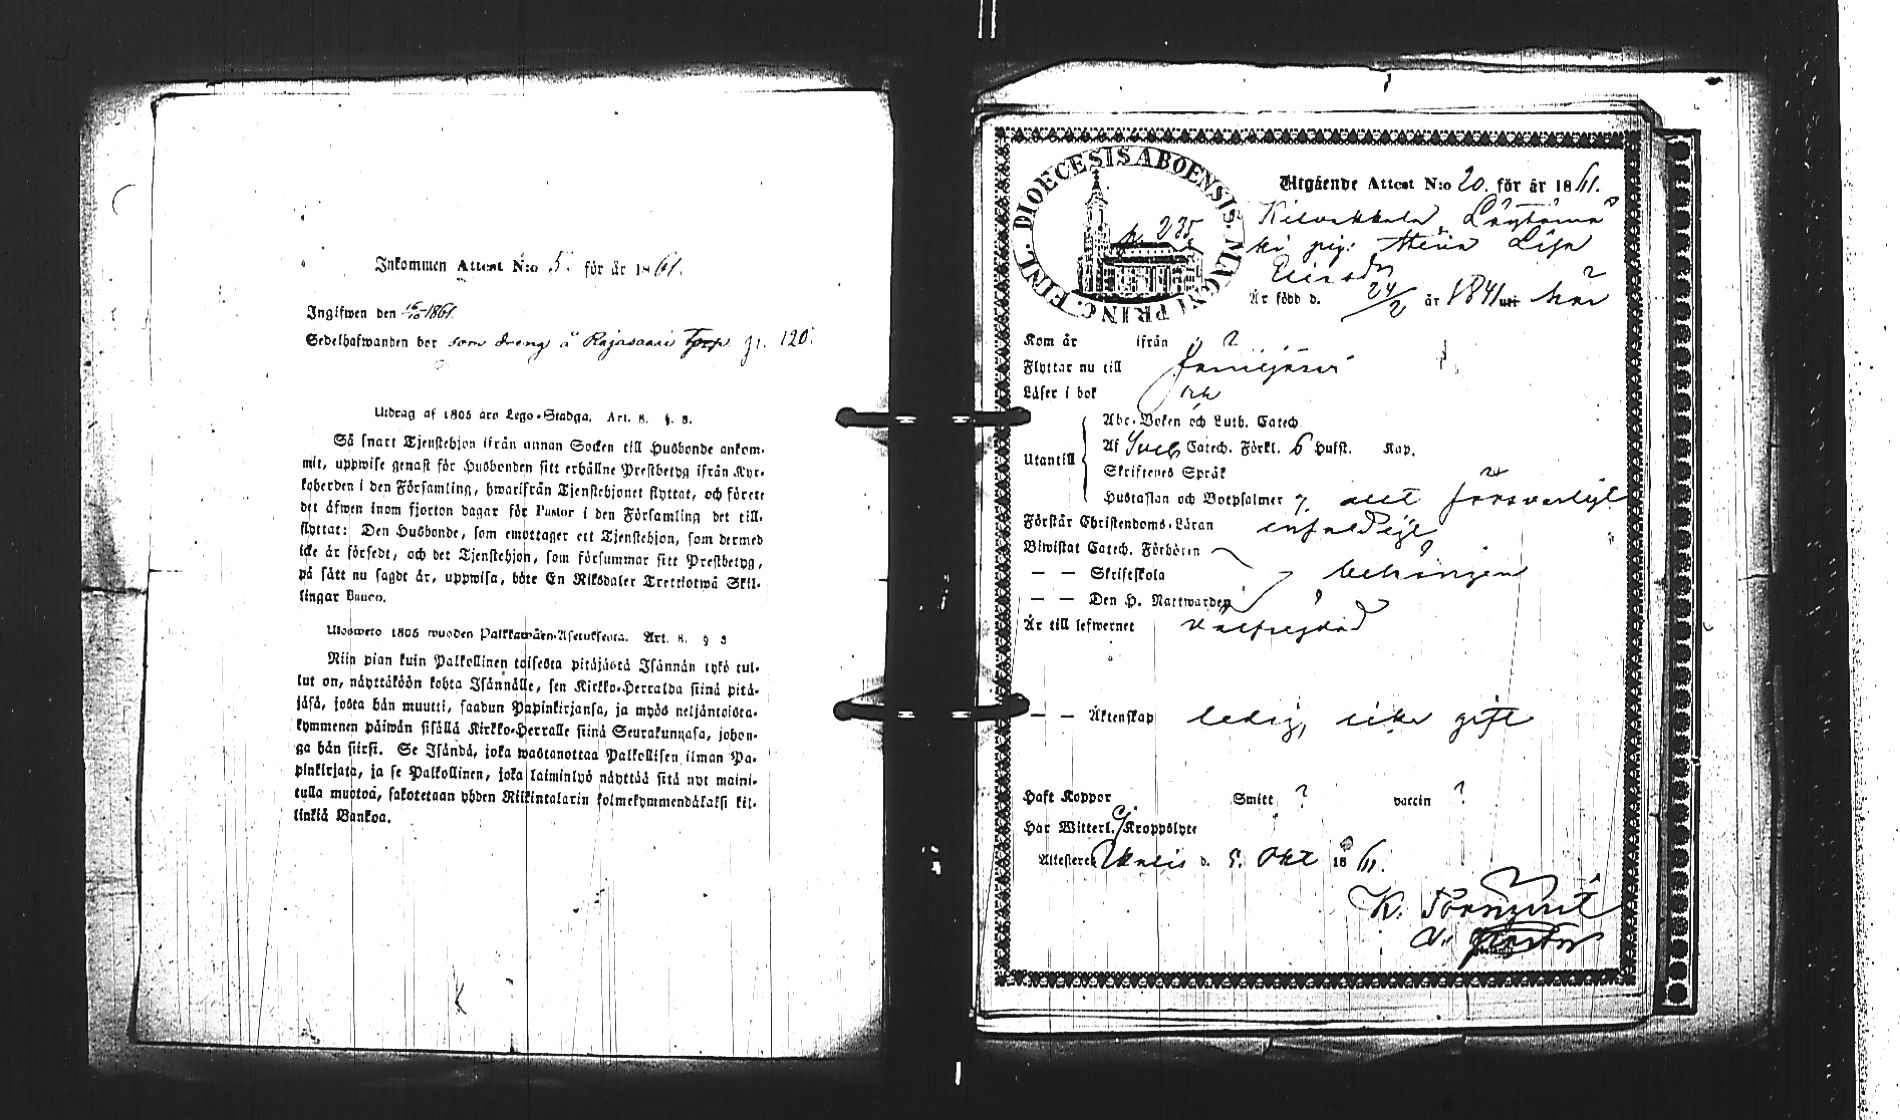 Inkommen Attest N:o 5. för år 1861.
Ingifwen den 15/10 1861
Sedelhafwanden bor som dreng å Rajasaari Torp p. 120.
Utdrag af 1805 års Lego-Stadga. Art. 8. §. 3.
Så snart Tjenstehjon ifrån annan Socken till Husbonde ankom-
mit, uppwise genast för Husbonden sitt erhållne Prestbetyg ifrån Kyr-
koherden i den Församling, hwarifrån Tjenstehjonet flyttat, och förete
det äfwen inom fjorton dagar för Pastor i den Församling det till-
flyttat: Den Husbonde, som emottager ett Tjenstehjon, som dermed
icke är försedt, och det Tjenstehjon, som försummar sitt Prestbetyg,
på sätt nu sagdt är, uppwisa, böte En Riksdaler Trettiotwå Skil-
lingar Banco.
Ulosweto 1805 wuoden Palkkawäen-Asetuksesta. Art. 8. § 3
Niin pian kuin Palkollinen toisesta pitäjästä Isännän tykö tul-
lut on, näyttäköön kohta Isännälle, sen Kirkko-Herralda siinä pitä-
jäsä, josta hän muutti, saadun Papinkirjansa, ja myös neljäntoista-
kymmenen päiwän sisällä Kirkko-Herralle siinä Seurakunnasa, johon-
ga hän siirsi. Se Isändä, joka wastanottaa Palkollisen ilman Pa-
pinkirjata, ja se Palkollinen, joka laiminlyö näyttää sitä nyt maini-
tulla muotoa, sakotetaan yhden Riikintalarin kolmekymmendäkaksi kil-
linkiä Bankoa.
FINL. DIOECESIS ABOENSIS. MAGNI PRINC.
p. 235
Utgående Attest N:o 20. för år 1861.
pig: Lisa
Är född d. 24/2 år 1841 uti här
Kom år ifrån ?
Flyttar nu till
Läser i bok
Utantill
Abc-Boken och Luth. Catech.
Af Sveb Catech. Förkl. 6 Hufst. Kap.
Skriftenes Språk
Hustaflan och Botpsalmer allt försvarligt
Förstår Christendoms-Läran enfaldigt
Biwistat Catech. Förhören
— — Skriftskola behörigen
— — Den H. Nattwarden
Är till lefwernet välfrejdad
— — Äktenskap ledig, icke gift
Haft Koppor Smitt ? vaccin ?
Har Witterl. Kroppslyte
Attesterer d. 5. Okt 1861.
K.